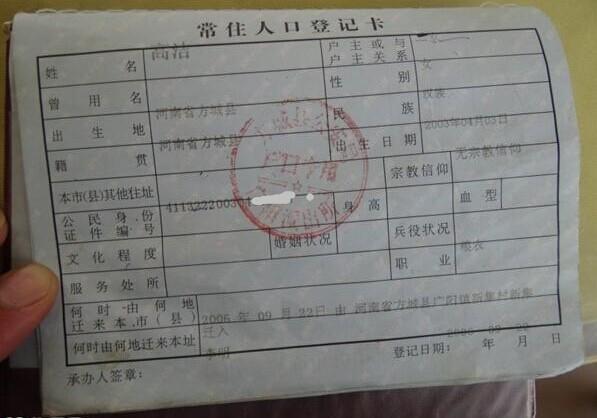 常住人口登记卡
姓名 高洁 户主或与户主关系
曾用名 性别 女
出生地 河南省方城县 民族 汉族
籍贯 河南省方城县 出生日期 2003年04月03日
本市(县)其他住址 宗教信仰 无宗教信仰
公民身份证件编号 411322200304 身高 血型
文化程度 婚姻状况 兵役状况
服务处所 职业 
何时由何地迁来本市(县) 2006年09月22日由河南省方城县广阳镇新集村新集
何时由何地迁来本址 迁入
承办人签章: 李明 登记日期: 年 月 日